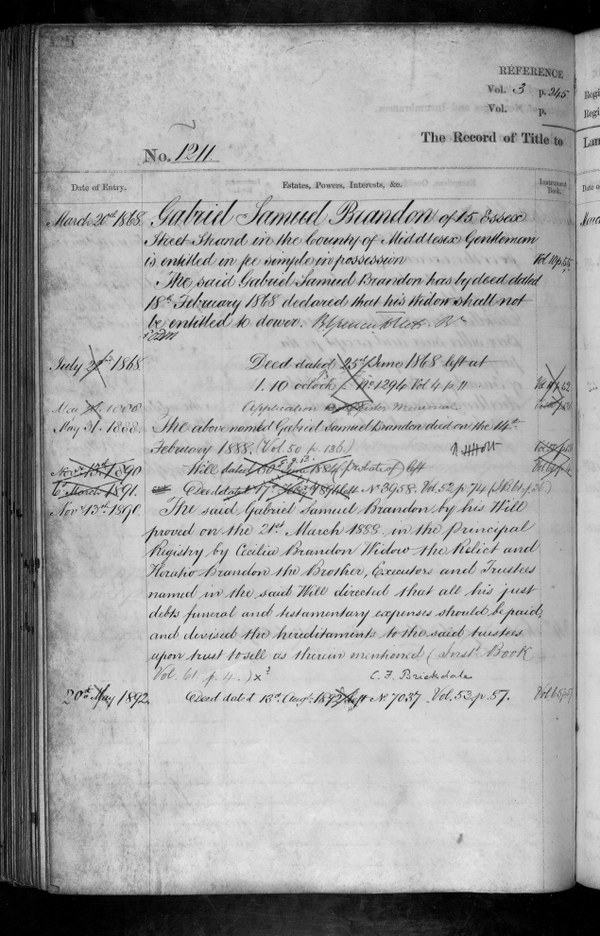 REFERENCE
Vol. 3 p. 245
Vol. p.
The Record of Title to
No. 1211
Date of Entry.
Estates, Powers, Interests, &c.
Instrument Book.
March 20th 1868
Gabriel Samuel Brandon of 15 Essex
Street Strand in the County of Middlesex Gentleman
is entitled in fee simple in possession
Vol. 10 p. 55
The said Gabriel Samuel Brandon has by deed dated
18th February 1868 declared that his Widow shall not
be entitled to dower.
July 1868
Deed dated 25th June 1868 left at
1.10 oclock No 1294 Vol 4 p. 11
Application Memorial
May 31. 1888.
The above named Gabriel Samuel Brandon died on the 14th
February 1888. (Vol. 50 p. 136)
Novr 13th 1890
Will dated 30th 1884 (probate of) left
6th March 1891.
Deed dated 17th left No 3958. Vol. 52 p. 74
Novr 13th 1890
The said Gabriel Samuel Brandon by his Will
proved on the 21st March 1888 in the Principal
Registry by Cecilia Brandon Widow the Relict and
Horatio Brandon the Brother, Executors and Trustees
named in the said Will directed that all his just
debts funeral and testamentary expenses should be paid
and devised the hereditaments to the said trustees
upon trust to sell as therein mentioned (Inst. Book
Vol. 61 p. 4.)
C. F. Brickdale
20th May 1892
Deed dated left No 7037 Vol. 53 p. 57.